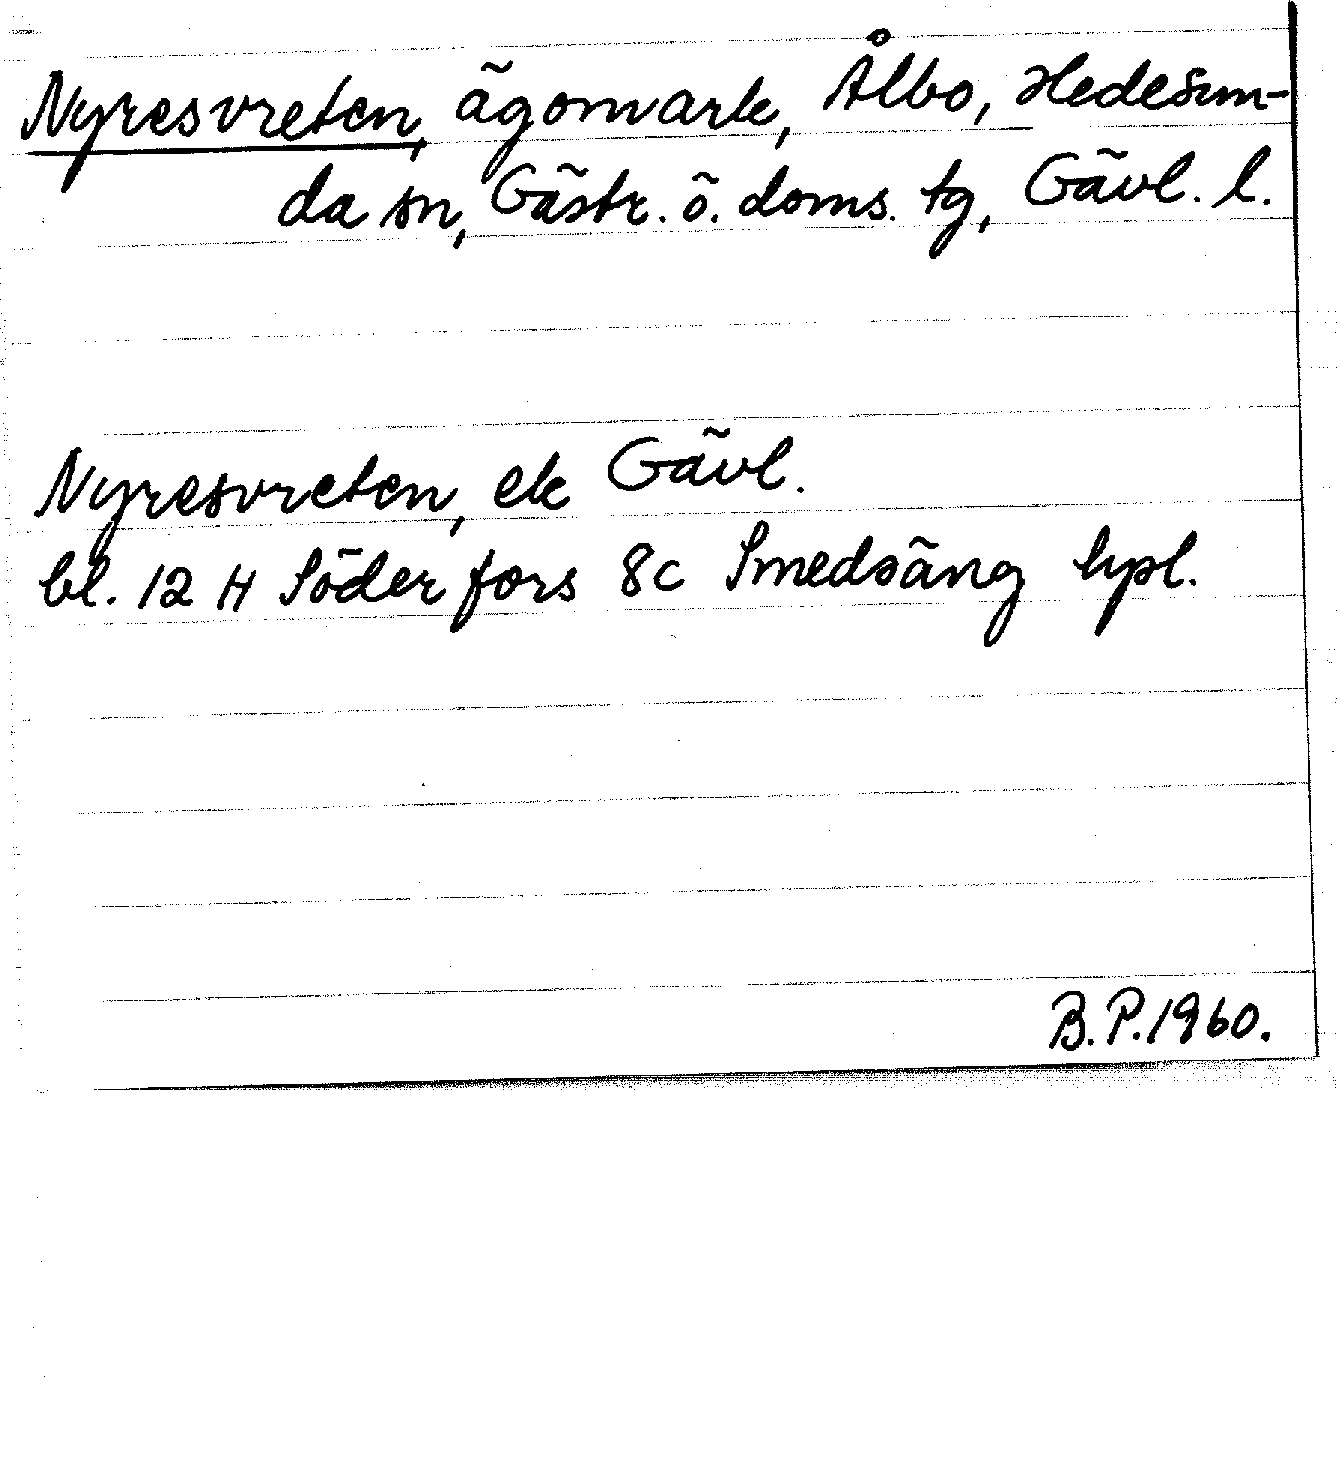 Nyresvreten, ägomark, Ålbo, Hedesun-
da sn, Gästr. ö. doms. tg, Gävl. l.
Nyresvreten, ek Gävl.
bl. 12 H Söderfors 8c Smedsäng kpl.
B.P.1960.